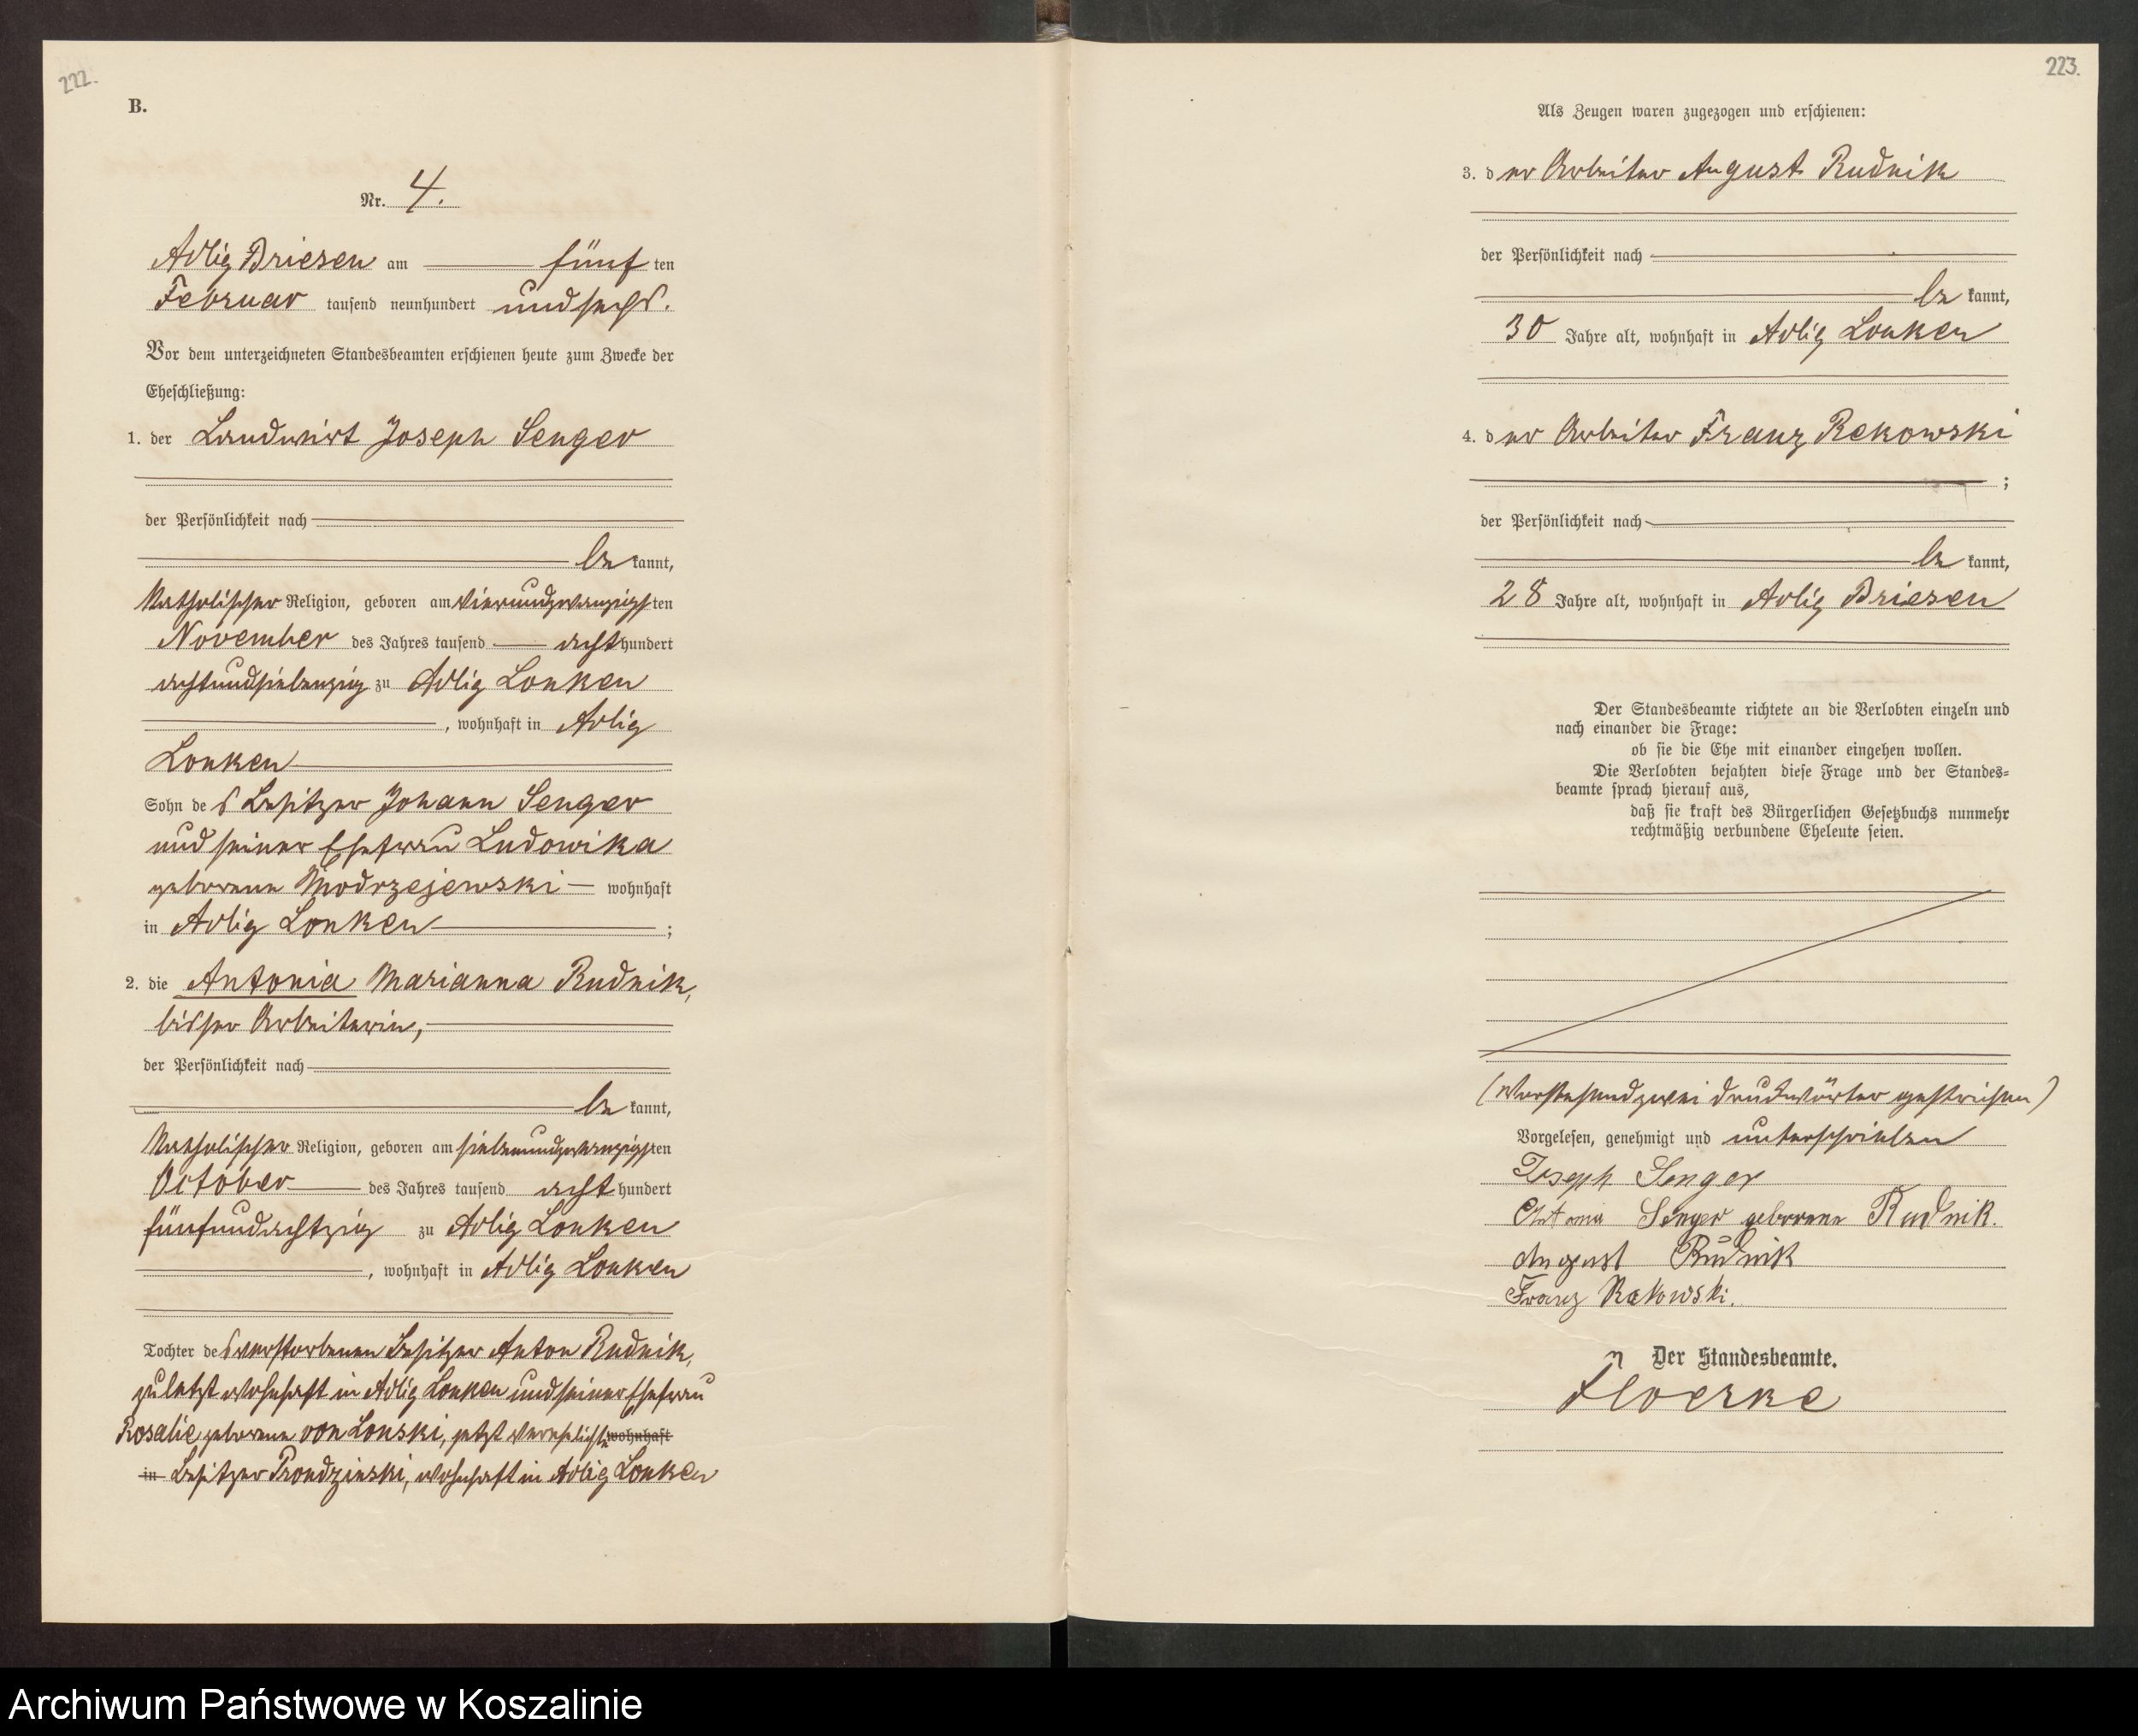 222.
B.
Nr. 4.
Adlig Briesen am fünf ten
Februar tausend neunhundert und sechs.
Vor dem unterzeichneten Standesbeamten erschienen heute zum Zwecke der
Eheschließung:
1. der Landwirt Joseph Senger
der Persönlichkeit nach
be kannt,
katholischer Religion, geboren am vierundzwanzigsten
November des Jahres tausend acht hundert
achtundsiebenzig zu Adlig Lonken
, wohnhaft in Adlig
Lonken
Sohn des Besitzer Johann Senger
und seiner Ehefrau Ludowika
geborene Modrzejewski wohnhaft
in Adlig Lonken ;
2. die Antonia Marianna Rudnik,
bisher Arbeiterin,
der Persönlichkeit nach
be kannt,
katholischer Religion, geboren am siebenundzwanzigsten
October des Jahres tausend acht hundert
fünfundachtzig zu Adlig Lonken
, wohnhaft in Adlig Lonken
Tochter des verstorbenen Besitzer Anton Rudnik,
zuletzt wohnhaft in Adlig Lonken und seiner Ehefrau
Rosalie geborene von Lonski, jetzt verehelichte wohnhaft
in Besitzer Prondzinski, wohnhaft in Adlig Lonken
223.
Als Zeugen waren zugezogen und erschienen:
3. der Arbeiter August Rudnik
der Persönlichkeit nach
be kannt,
30 Jahre alt, wohnhaft in Adlig Lonken
4. der Arbeiter Franz Rekowski
;
der Persönlichkeit nach
be kannt,
28 Jahre alt, wohnhaft in Adlig Briesen
Der Standesbeamte richtete an die Verlobten einzeln und
nach einander die Frage:
ob sie die Ehe mit einander eingehen wollen.
Die Verlobten bejahten diese Frage und der Standes-
beamte sprach hierauf aus,
daß sie kraft des Bürgerlichen Gesetzbuchs nunmehr
rechtmäßig verbundene Eheleute seien.
(Vorstehend zwei Druckwörter gestrichen)
Vorgelesen, genehmigt und unterschrieben
Joseph Senger
Antonia Senger geborene Rudnik.
August Rudnik
Franz Rekowski.
Der Standesbeamte.
Floerke
Archiwum Państwowe w Koszalinie